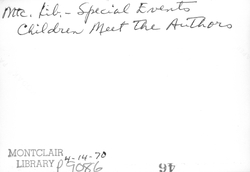 Mtc. Lib. - Special Events
Children Meet The Authors
4-14-70
MONTCLAIR
LIBRARY P 7086
46